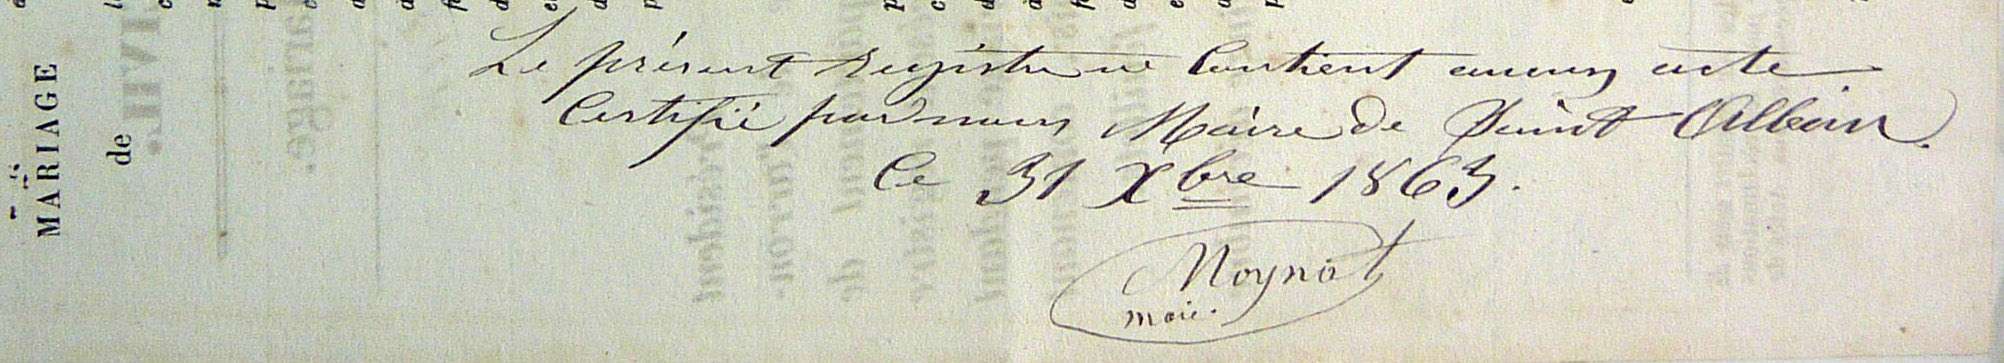 Le présent registre ne Contient aucun acte
Certifié par nous Maire de Saint Albin
Ce 31 Xbre 1863.
Noynot
maire.
MARIAGE
de